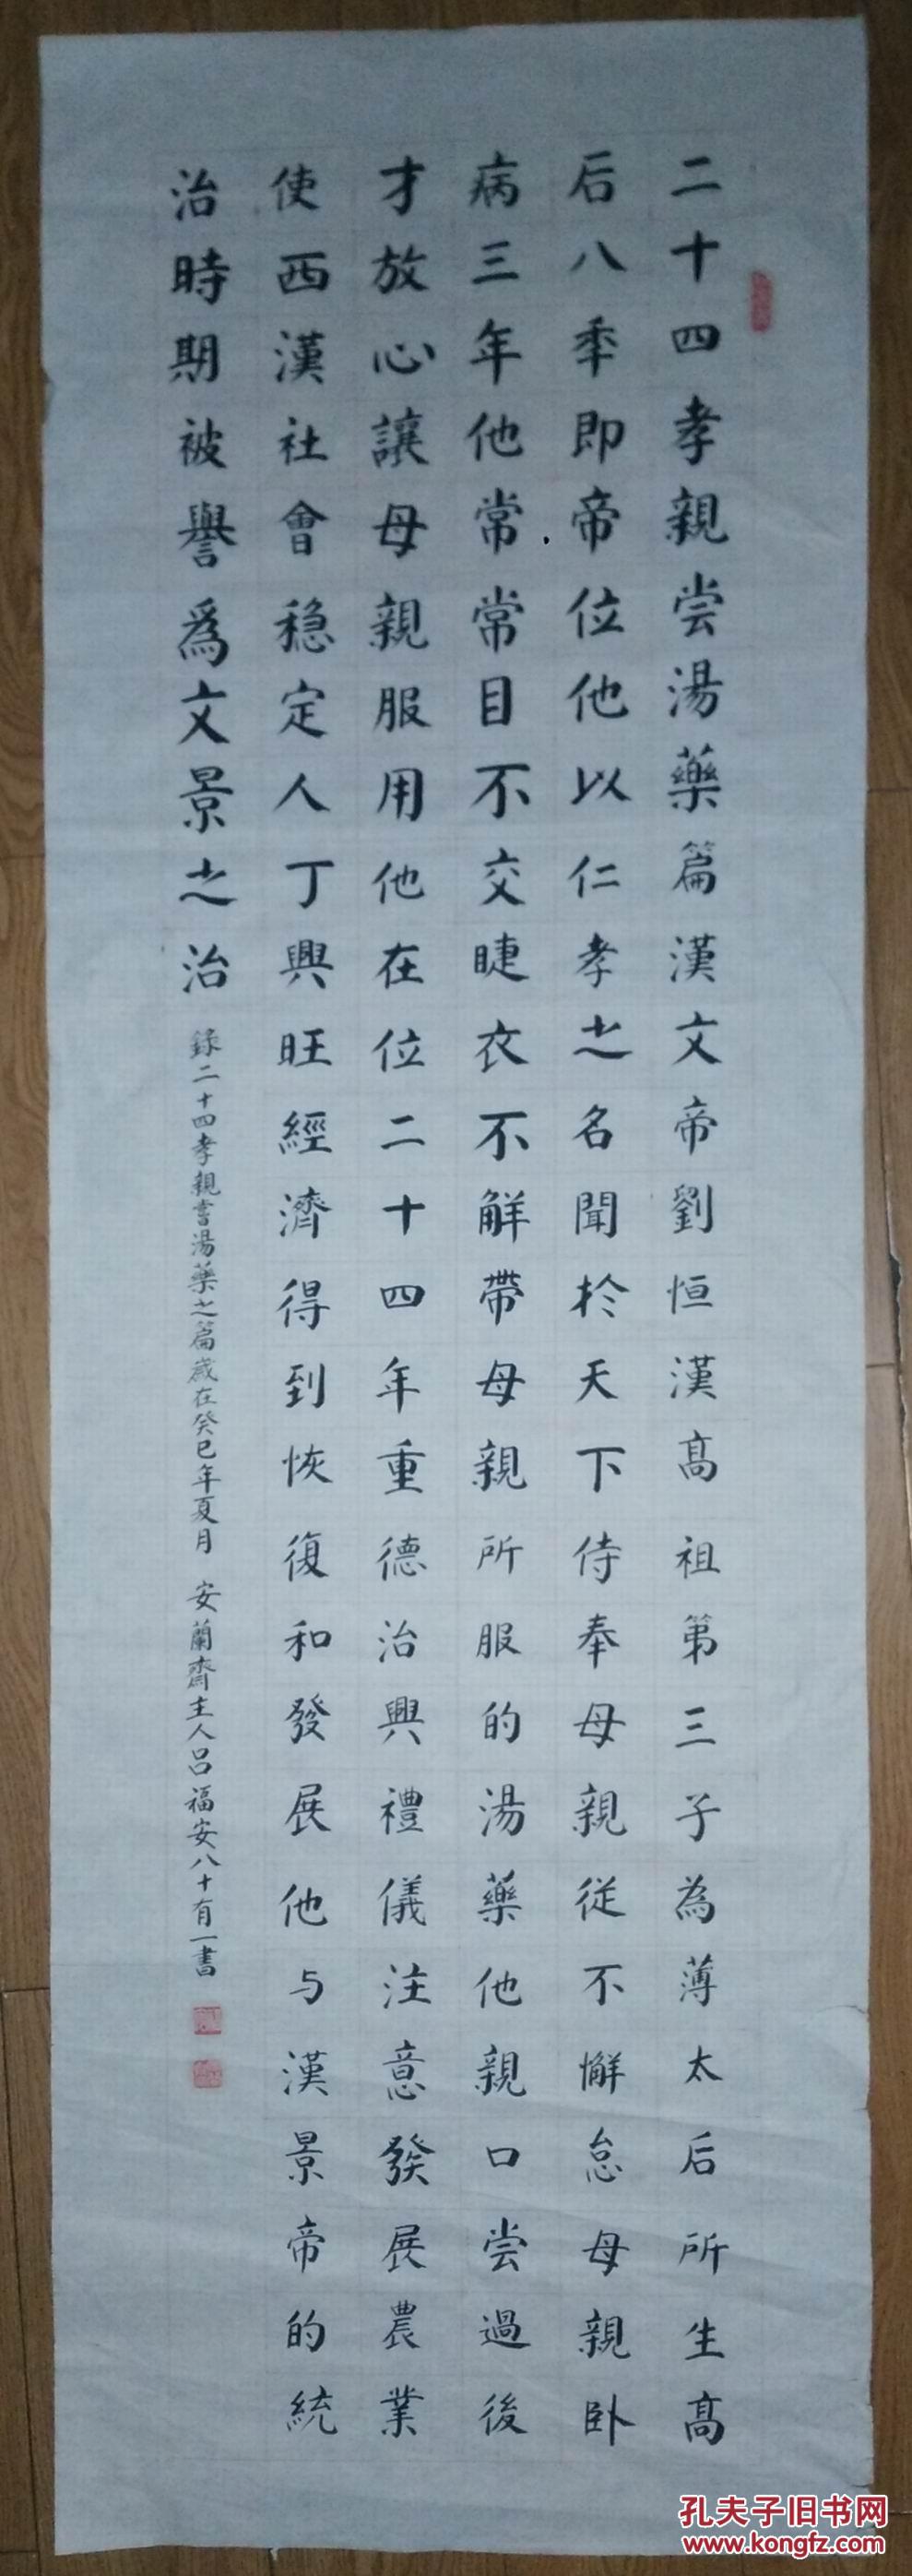 二十四孝親尝湯藥篇漢文帝劉恒漢髙祖第三子為薄太后所生髙
后八秊即帝位他以仁孝之名聞於天下侍奉母親從不懈怠母親卧
病三年他常常目不交睫衣不解帶母親所服的湯藥他親口尝過後
才放心讓母親服用他在位二十四年重德治興禮儀注意發展農業
使西漢社會稳定人丁興旺經濟得到恢復和發展他与漢景帝的統
治時期被譽爲文景之治
錄二十四孝親嘗湯藥之篇歲在癸巳年夏月 安蘭齋主人吕福安八十有一書
孔夫子旧书网
www.kongfz.com